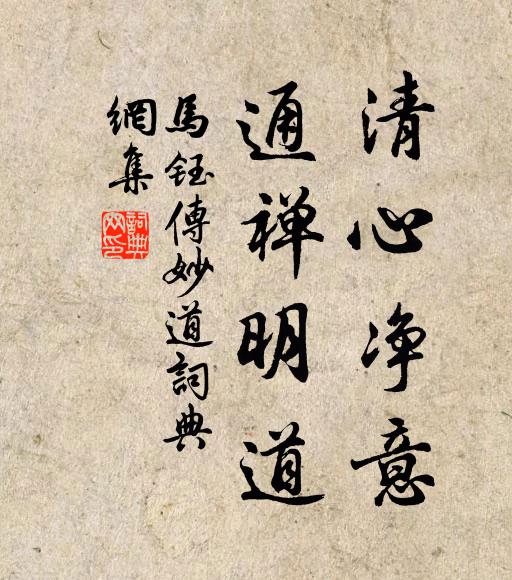 清心净意
通禅明道
馬鈺傳妙道詞典
網集
詞典網印